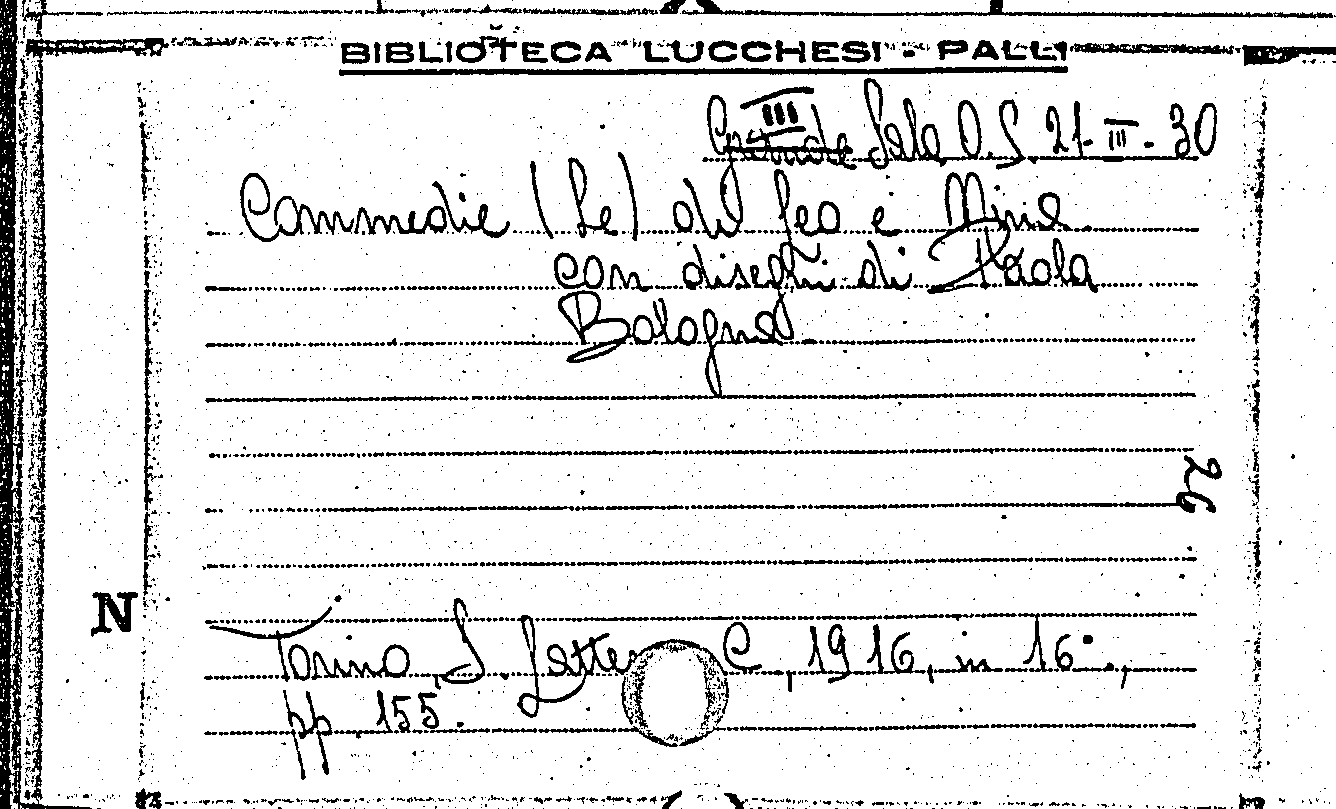 BIBLIOTECA LUCCHESI - PALLI
III Sala O. S. 21-III-30
Commedie (Le) del Geo e Mina
con disegni di Paola
Bologna.
26
N
Torino, S. Lattes C., 1916, in 16°.,
pp 155.